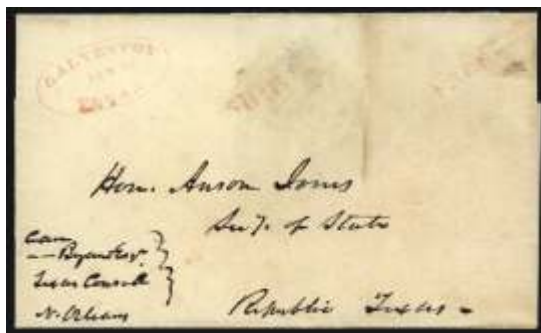 GALVESTON
TEXAS
SHIP
Hon. Anson Jones
Secy. of State
Care
Bryan Esqr.
Texas Consul
N. Orleans
Republic Texas